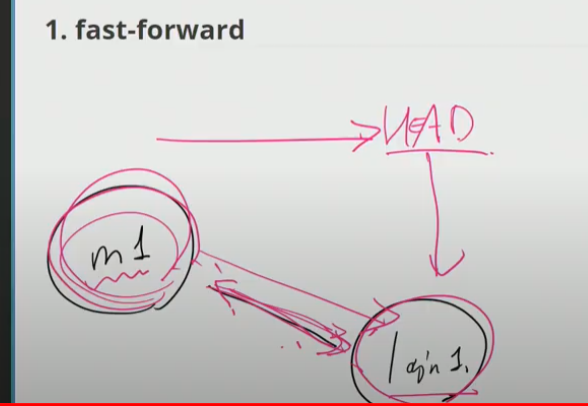 1. fast-forward
HEAD
m1
login 1.